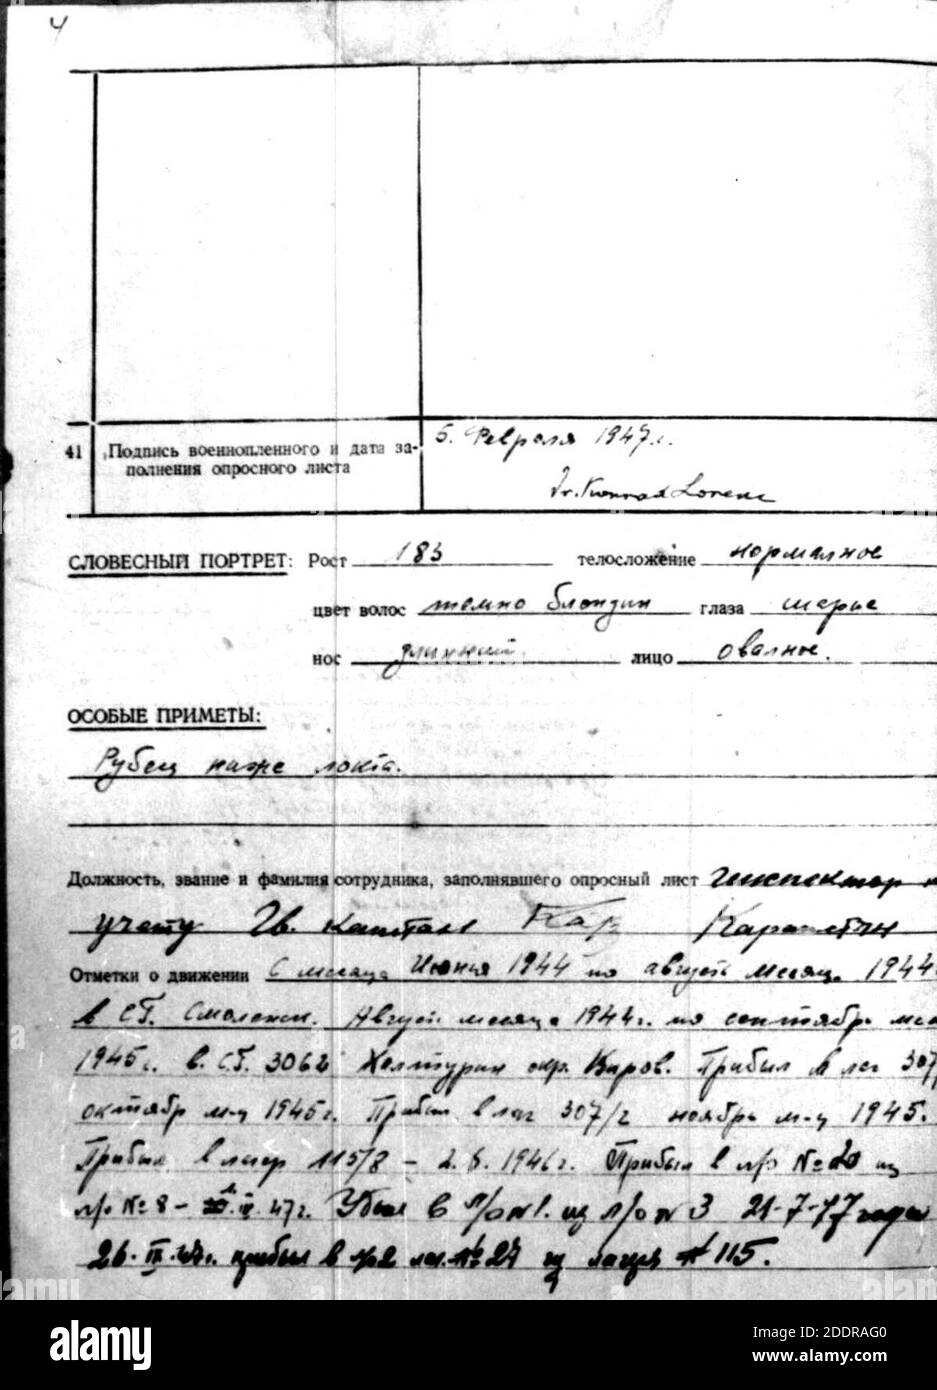 4
41 Подпись военнопленного и дата за-
полнения опросного листа
5. Февраля 1947 г.
Dr. Konrad Lorenz
СЛОВЕСНЫЙ ПОРТРЕТ: Рост 183 телосложение нормалное
цвет волос темно блондин глаза
нос лицо овалное.
ОСОБЫЕ ПРИМЕТЫ:
Рубец ниже локта.
Должность, звание и фамилия сотрудника, заполнявшего опросный лист
учету Гв. капитан
Отметки о движении С месяца Июня 1944 по август месяц 1944
в СГ. Смоленск. Август месяца 1944 г. по сентябрь
1945 г. в. СГ. 3062 Халтурин окр. Киров. Прибыл в лаг 307/
октябр м-ц 1945 г. Прибыл в лаг 307/2 ноябрь м-ц 1945.
Прибыл в лагер 115/8 – 2.6.1946 г. Прибыл в л/о № 20 из
л/о № 8 – IV. 47 г. Убыл в л/о №1. из л/о № 3 21-7-47 года
26. IX. 47 г. прибыл в лаг. № 27 из лагеря # 115.
alamy
Image ID: 2DDRAG0
www.alamy.com